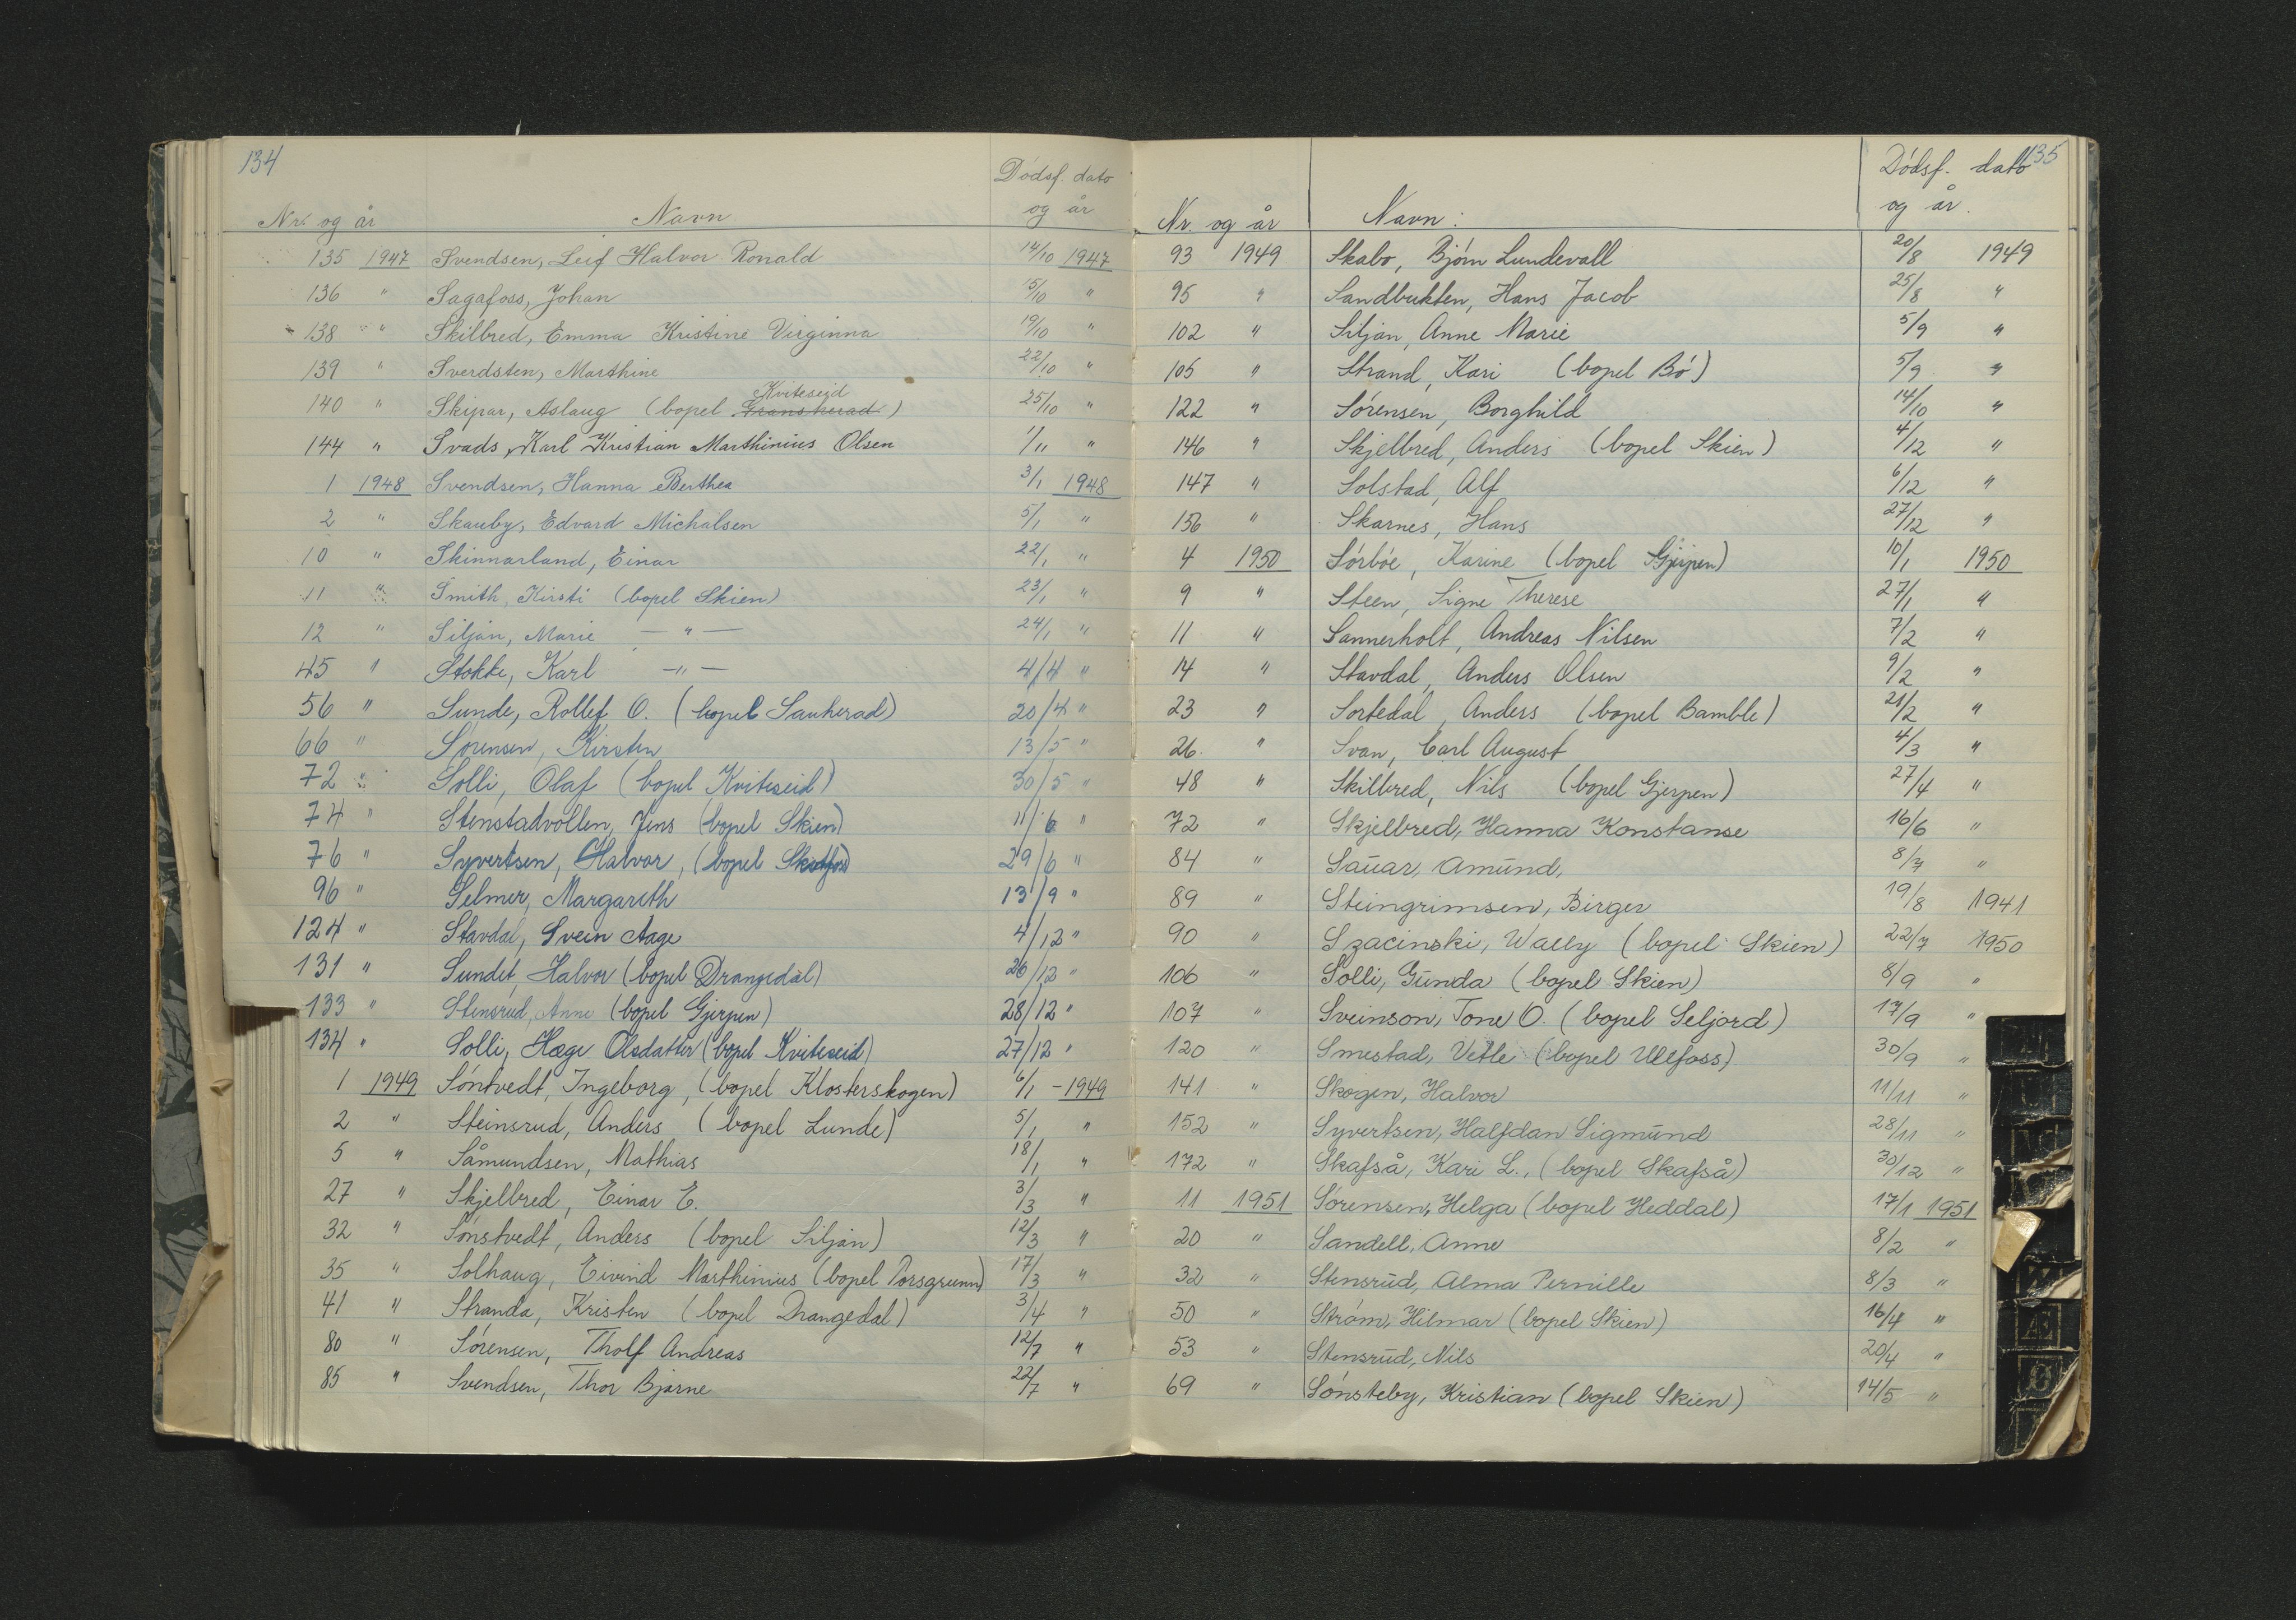 134
Dødsf. dato
Nr. og år Navn. og år
135 1947 Svendsen, Leif Halvor Ronald 14/10 1947
136 " Sagafoss, Johan 15/10 "
138 " Skilbred, Emma Kristine Virginna 19/10 "
139 " Sverdsten, Marthine 22/10 "
Kviteseid
140 " Skipar, Aslaug (bopel Gransherad) 25/10 "
144 " Svads, Karl Kristian Marthinius Olsen 1/11 "
1 1948 Svendsen, Hanna Berthea 3/1 1948
2 " Skauby, Edvard Michalsen 5/1 "
10 " Skinnarland, Einar 22/1 "
11 " Smith, Kirsti (bopel Skien) 23/1 "
12 " Siljan, Marie — " — 24/1 "
45 " Stokke, Karl — " — 4/4 "
56 " Sunde, Rollef O. (bopel Sauherad) 20/4 "
66 " Sørensen, Kirsten 13/5 "
72 " Solli, Olaf (bopel Kviteseid) 30/5 "
74 " Stenstadvollen, Jens (bopel Skien) 11/6 "
76 " Syvertsen, Halvor, (bopel Skotfoss) 29/6 "
96 " Selmer, Margareth 13/9 "
124 " Stavdal, Svein Aage 4/12 "
131 " Sundet, Halvor (bopel Drangedal) 26/12 "
133 " Stensrud, Anne (bopel Gjerpen) 28/12 "
134 " Solli, Hæge Olsdatter (bopel Kviteseid) 27/12 "
1 1949 Søntvedt, Ingeborg, (bopel Klosterskogen) 6/1 - 1949
2 " Steinsrud, Anders (bopel Lunde) 5/1 "
5 " Såmundsen, Mathias 18/1 "
27 " Skjelbred, Einar E. 3/3 "
32 " Sønstvedt, Anders (bopel Siljan) 12/3 "
35 " Solhaug, Eivind Marthinius (bopel Porsgrunn) 17/3 "
41 " Stranda, Kristen (bopel Drangedal) 3/4 "
80 " Sørensen, Tholf Andreas 12/7 "
85 " Svendsen, Thor Bjarne 22/7 "
135
Dødsf. dato
Nr. og år Navn: og år.
93 1949 Skabo, Bjørn Lundevall 20/8 1949
95 " Sandbukten, Hans Jacob 25/8 "
102 " Siljan, Anne Marie 5/9 "
105 " Strand, Kari (bopel Bø) 5/9 "
122 " Sørensen, Borghild 14/10 "
146 " Skjelbred, Anders (bopel Skien) 4/12 "
147 " Solstad, Alf 6/12 "
156 " Skarnes, Hans 27/12 "
4 1950 Sørbøe, Karine (bopel Gjerpen) 10/1 1950
9 " Steen, Signe Therese 27/1 "
11 " Sannerholt, Andreas Nilsen 7/2 "
14 " Stavdal, Anders Olsen 9/2 "
23 " Sortedal, Anders (bopel Bamble) 21/2 "
26 " Svan, Carl August 4/3 "
48 " Skilbred, Nils (bopel Gjerpen) 27/4 "
72 " Skjelbred, Hanna Konstanse 16/6 "
84 " Sauar, Amund, 8/7 "
89 " Steingrimsen, Birger 19/8 1941
90 " Szacinski, Wally (bopel Skien) 22/7 1950
106 " Solli, Gunda (bopel Skien) 8/9 "
107 " Sveinson, Tone O. (bopel Seljord) 17/9 "
120 " Smestad, Vetle (bopel Ulefoss) 30/9 "
141 " Skogen, Halvor 11/11 "
152 " Syvertsen, Halfdan Sigmund 28/11 "
172 " Skafså, Kari L., (bopel Skafså) 30/12 "
11 1951 Sørensen, Helga (bopel Heddal) 17/1 1951
20 " Sandell, Anne 8/2 "
32 " Stensrud, Alma Pernille 8/3 "
50 " Strøm, Hilmar (bopel Skien) 16/4 "
53 " Stensrud, Nils 20/4 "
69 " Sønsteby, Kristian (bopel Skien) 14/5 "
Æ
Ø